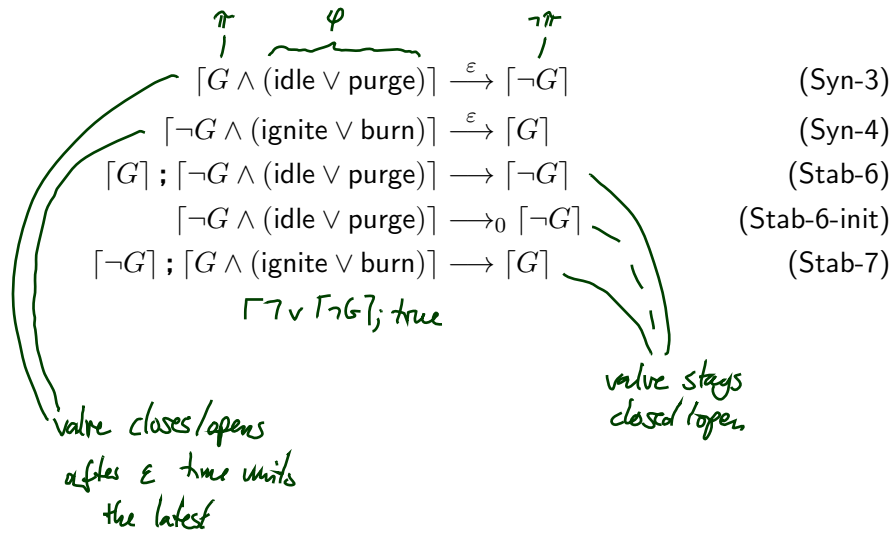 π φ ¬π
⌈G ∧ (idle ∨ purge)⌉ —ε→ ⌈¬G⌉ (Syn-3)
⌈¬G ∧ (ignite ∨ burn)⌉ —ε→ ⌈G⌉ (Syn-4)
⌈G⌉ ; ⌈¬G ∧ (idle ∨ purge)⌉ ⟶ ⌈¬G⌉ (Stab-6)
⌈¬G ∧ (idle ∨ purge)⌉ ⟶₀ ⌈¬G⌉ (Stab-6-init)
⌈¬G⌉ ; ⌈G ∧ (ignite ∨ burn)⌉ ⟶ ⌈G⌉ (Stab-7)
⌈⌉ ∨ ⌈¬G⌉; true
valve stays
closed/open
valve closes/opens
after ε time units
the latest